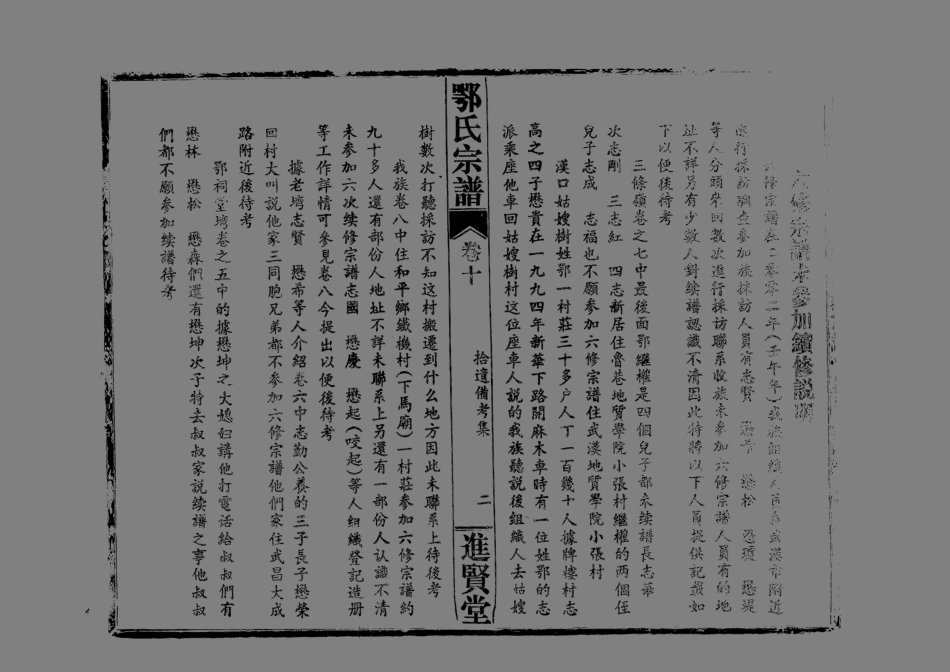 六修宗譜未參加續修説明
六修宗譜在二零零二年(壬午年)我族組織人員在武漢市附近
進行採訪調查參加族採訪人員有志賢 懋希 懋松 懋瓊 懋堤
等人分頭來回數次進行採訪聯系收族未參加六修宗譜人員有的地
址不詳另有少數人對续譜認識不清因此特將以下人員提供記載如
下以便後待考
三條嶺卷之七中最後面鄂繼權是四個兒子都未续譜長志華
次志剛 三志紅 四志新居住魯巷地質學院小張村繼權的两個侄
兒子志成 志福也不願參加六修宗譜住武漢地質學院小張村
漢口姑嫂樹姓鄂一村莊三十多户人丁一百幾十人據牌樓村志
高之四子懋貴在一九九四年新華下路開麻木車時有一位姓鄂的志
派乘座他車回姑嫂樹村這位座車人説的我族聽説後組織人去姑嫂
鄂氏宗譜 卷十 拾遺備考集 二 進賢堂
樹數次打聽採訪不知這村搬遷到什么地方因此未聯系上待後考
我族卷八中住和平鄉鐵機村(下馬廟)一村莊參加六修宗譜約
九十多人還有部份人地址不詳未聯系上另還有一部份人认識不清
未參加六次续修宗譜志國 懋慶 懋起(咬起)等人組織登記造册
等工作詳情可參見卷八今提出以便後待考
據老塆志賢 懋希等人介紹卷六中志勤公養的三子長子懋榮
回村大叫説他家三同胞兄弟都不參加六修宗譜他們家住武昌大成
路附近後待考
鄂祠堂塆卷之五中的據懋坤之大媳妇講他打電话給叔叔們有
懋林 懋松 懋森們還有懋坤次子特去叔叔家説续譜之事他叔叔
們都不願參加续譜待考